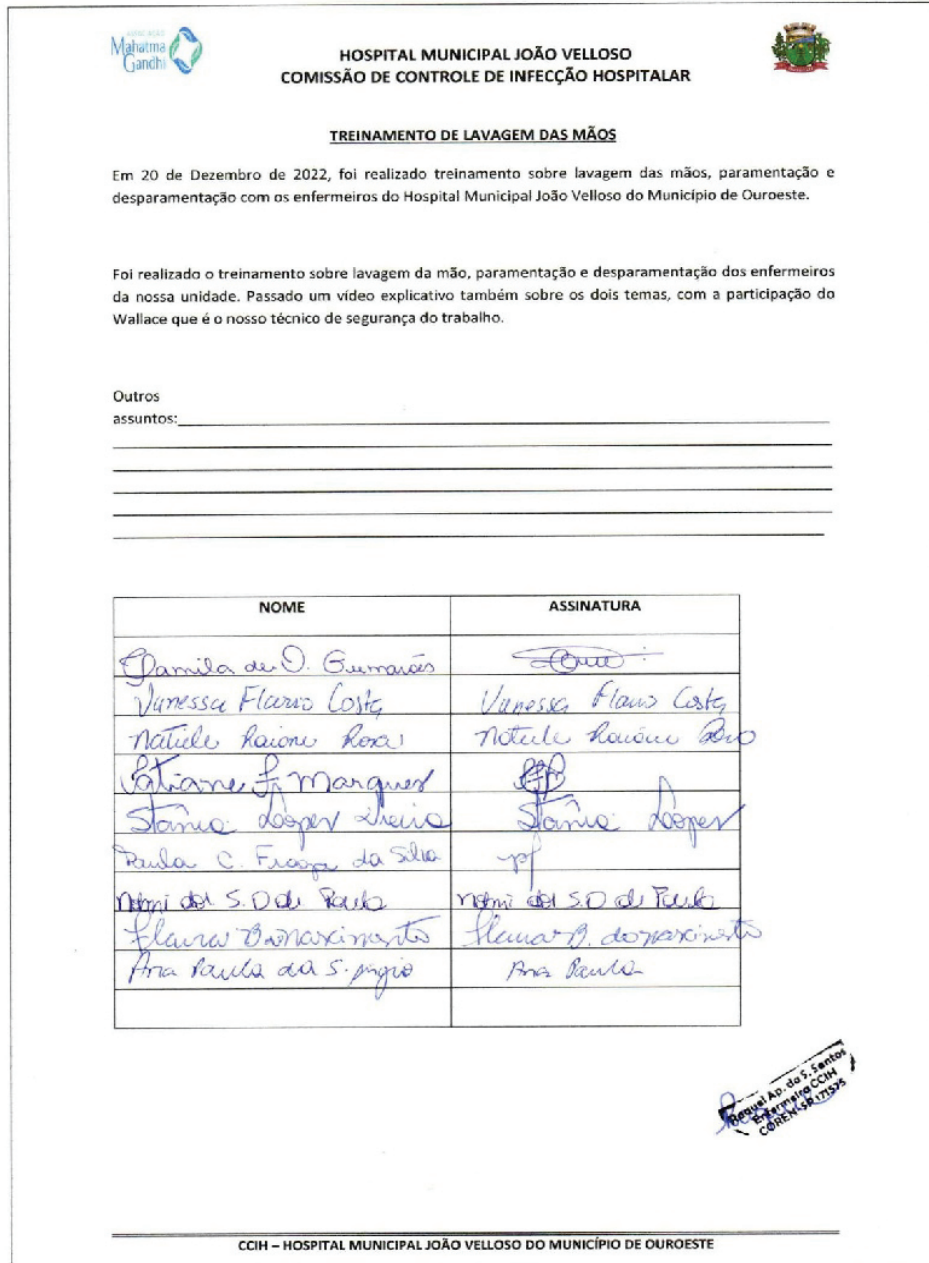 ASSOCIAÇÃO
Mahatma
Gandhi
HOSPITAL MUNICIPAL JOÃO VELLOSO
COMISSÃO DE CONTROLE DE INFECÇÃO HOSPITALAR
TREINAMENTO DE LAVAGEM DAS MÃOS
Em 20 de Dezembro de 2022, foi realizado treinamento sobre lavagem das mãos, paramentação e
desparamentação com os enfermeiros do Hospital Municipal João Velloso do Município de Ouroeste.
Foi realizado o treinamento sobre lavagem da mão, paramentação e desparamentação dos enfermeiros
da nossa unidade. Passado um vídeo explicativo também sobre os dois temas, com a participação do
Wallace que é o nosso técnico de segurança do trabalho.
Outros
assuntos:
NOME ASSINATURA
Camila de O. Guimarães
Vanessa Flavio Costa Vanessa Flavio Costa
Natiele Raione Rosa Natiele Raione
Tatiane F. Marques
Stânia Lopes Vieira Stânia Lopes
Paula C. Fraga da Silva
Noemi dos S. O de Paula Noemi dos S. O de Paula
B. do nascimento
Ana Paula da S. Ana Paula
Raquel Ap. da S. Santos
Enfermeira CCIH
COREN-SP 171575
CCIH – HOSPITAL MUNICIPAL JOÃO VELLOSO DO MUNICÍPIO DE OUROESTE